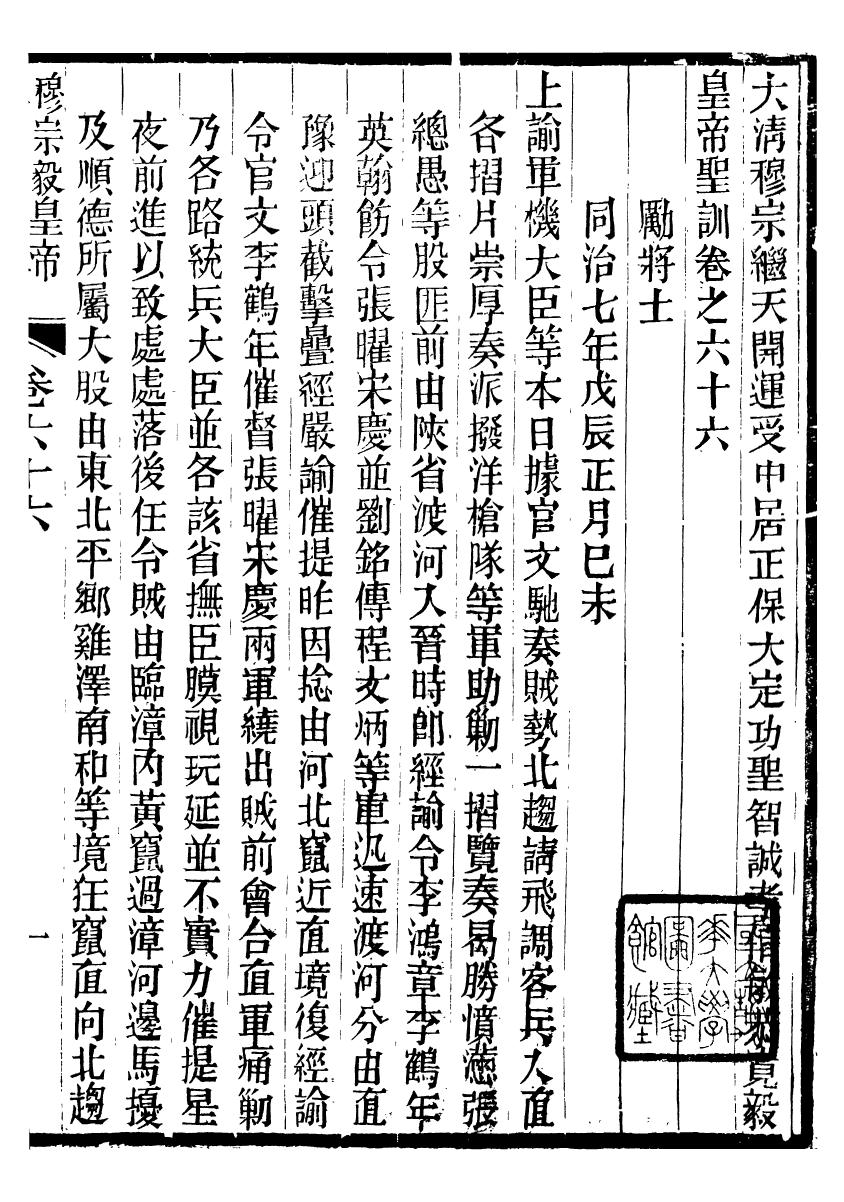 大清穆宗繼天開運受中居正保大定功聖智誠孝信敏恭寬毅
皇帝聖訓卷之六十六
勵將士
同治七年戊辰正月己未
上諭軍機大臣等本日據官文馳奏賊勢北趨請飛調客兵入直
各摺片崇厚奏派撥洋槍隊等軍助勦一摺覽奏曷勝憤懣張
總愚等股匪前由陝省渡河入晉時卽經諭令李鴻章李鶴年
英翰飭令張曜宋慶並劉銘傳程文炳等軍迅速渡河分由直
豫迎頭截擊疊經嚴諭催提昨因捻由河北竄近直境復經諭
令官文李鶴年催督張曜宋慶兩軍繞出賊前會合直軍痛勦
乃各路統兵大臣並各該省撫臣膜視玩延並不實力催提星
夜前進以致處處落後任令賊由臨漳內黃竄過漳河邊馬擾
及順德所屬大股由東北平鄉雞澤南和等境狂竄直向北趨
穆宗毅皇帝
卷六十六
一
華大學
圖書
館藏